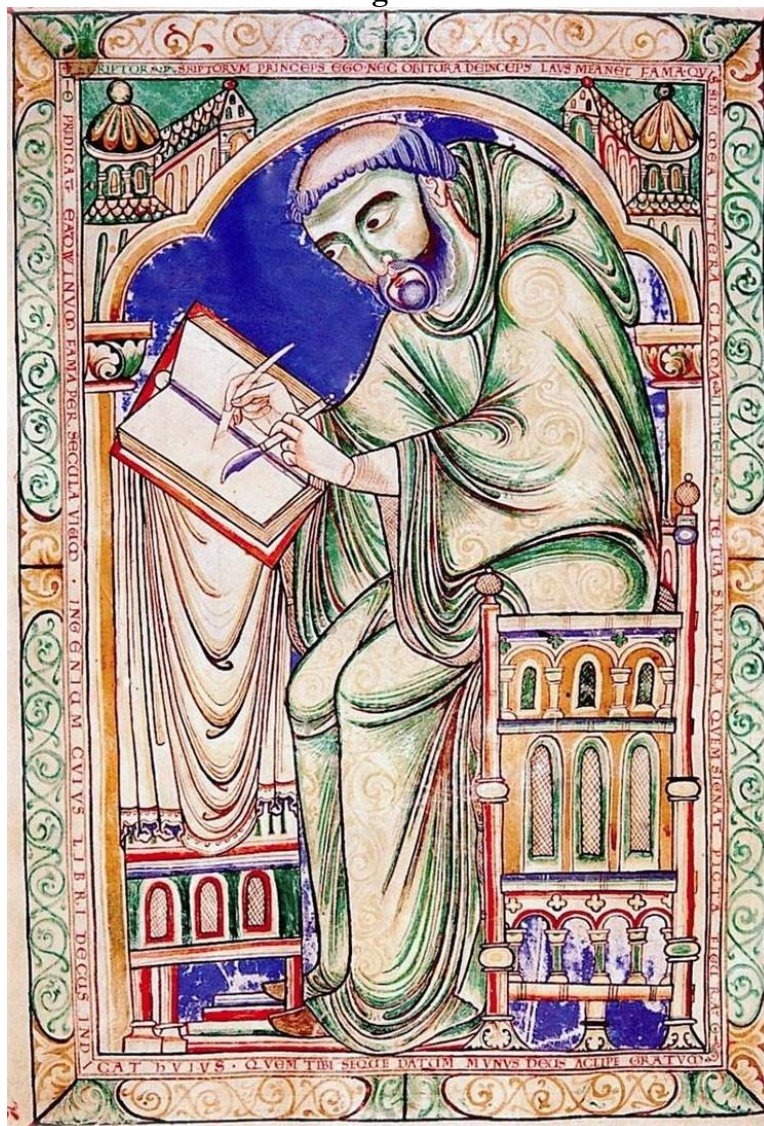 SCRIPTOR SRIPTORVM PRINCEPS EGO NEC OBITURA DEINCEPS LAVS MEA NEC FAMA QV
SIM MEA LITTERA CLAMA LITTERA TE TUA SCRIPTVRA QUEM SIGNAT PICTA FIGURA
PREDICAT EADWINVM FAMA PER SECULA VIVUM · INGENIUM CVIVS LIBRI DECUS INDI
CAT hVIVS · QVEM TIBI SEQUE DATUM MVNVS DEUS ACCIPE GRATVM